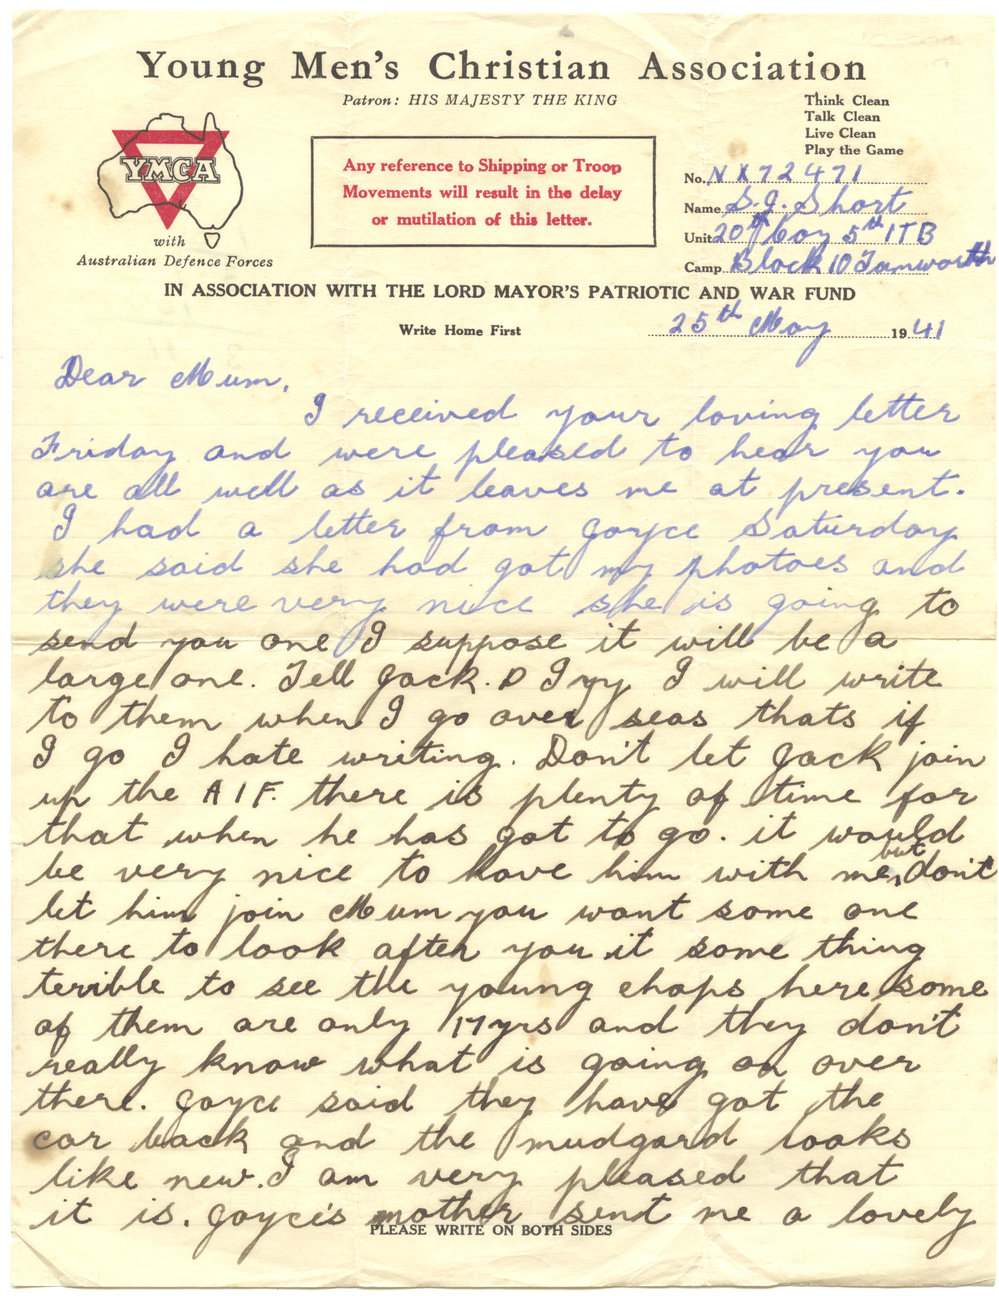 Young Men's Christian Association
Patron: HIS MAJESTY THE KING
Think Clean
Talk Clean
Live Clean
Play the Game
YMCA
with
Australian Defence Forces
Any reference to Shipping or Troop
Movements will result in the delay
or mutilation of this letter.
No. NX72471
Name S.J. Short
Unit 20th Coy 5th ITB
Camp Block 10 Tamworth
IN ASSOCIATION WITH THE LORD MAYOR'S PATRIOTIC AND WAR FUND
Write Home First
25th May 1941
Dear Mum,
I received your loving letter
Friday and were pleased to hear you
are all well as it leaves me at present.
I had a letter from Joyce Saturday
she said she had got my photoes and
they were very nice she is going to
send you one I suppose it will be a
large one. Tell Jack. D Ivy I will write
to them when I go over seas thats if
I go I hate writing. Don't let Jack join
up the AIF. there is plenty of time for
that when he has got to go. it would
be very nice to have him with me, but don't
let him join Mum you want some one
there to look after you it some thing
terrible to see the young chaps here some
of them are only 17yrs and they don't
really know what is going on over
there. Joyce said they have got the
car back and the mudgard looks
like new. I am very pleased that
it is. Joyce's mother sent me a lovely
PLEASE WRITE ON BOTH SIDES